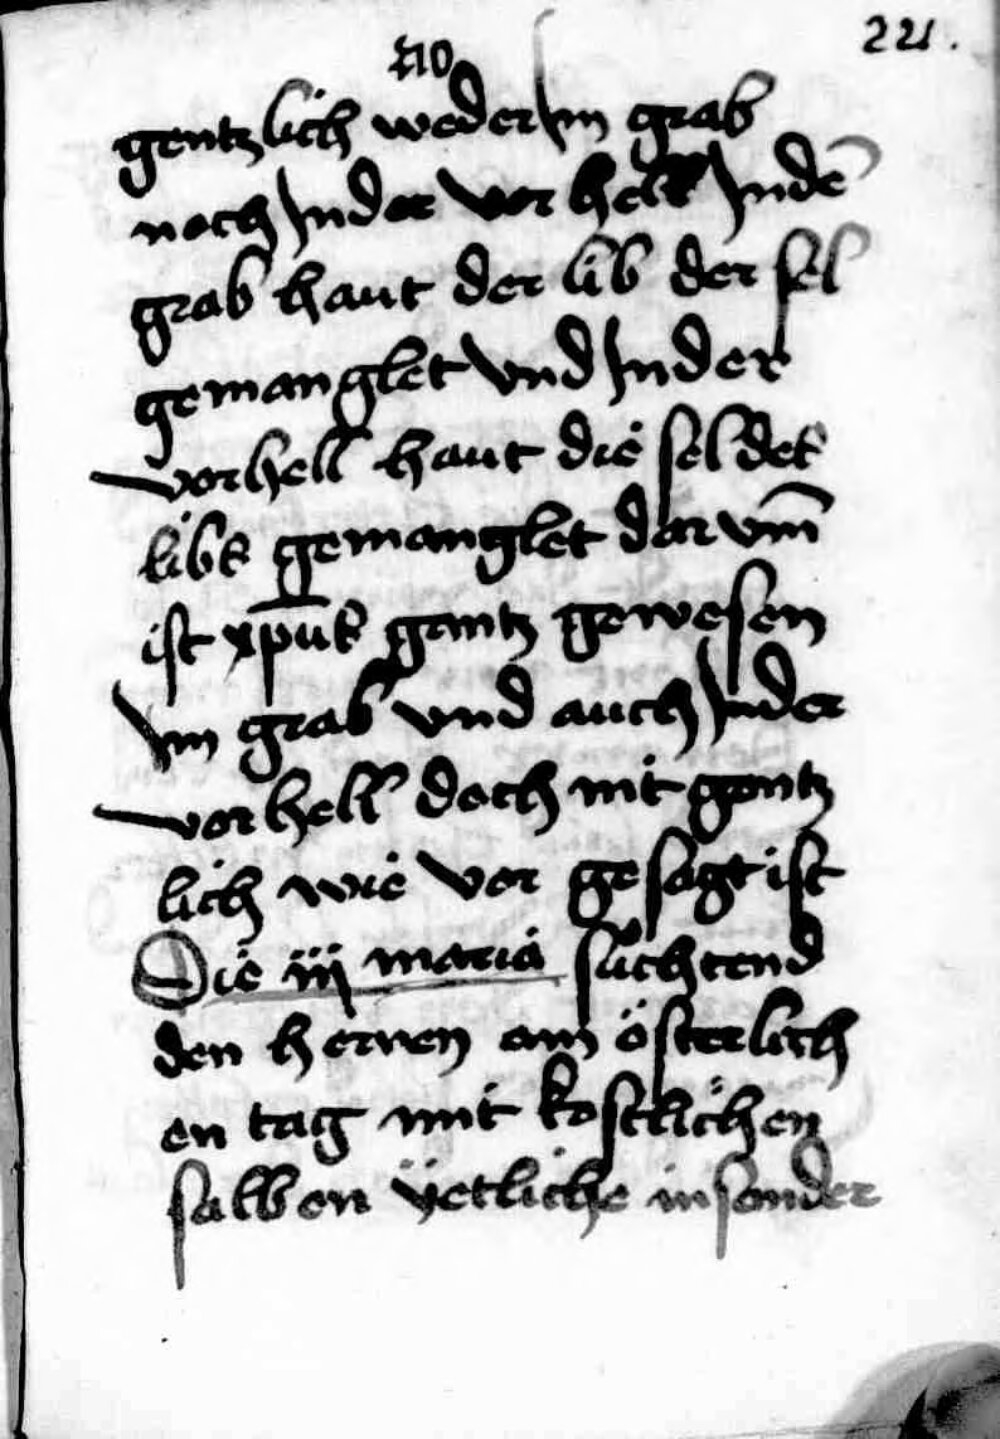 221.
210
gentzlich weder Im grab
noch In der vor hell In dē
grab haut der lib der sel
gemanglet vnd In der
vorhell haut die sel des
libs gemanglet dar vm̄
ist xp̄us gantz gewesen
Im grab vnd auch In der
vorhell doch nit gantz
lich wie vor gesagt ist
Die iij maria sůchtend
den herren am österlich
en tag mit kostlichen
salben yetliche in sonder